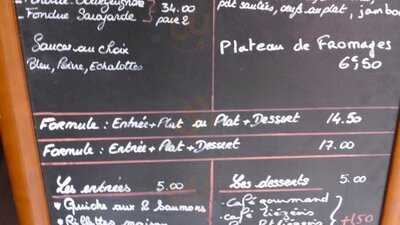 Fondue Savoyarde
34.00
pour 2
pdt sautées, œufs au plat, jambon
Sauces au choix
Bleu, Poivre, Echalottes
Plateau de Fromages
6€50
Formule : Entrée + Plat ou Plat + Dessert 14.50
Formule : Entrée + Plat + Dessert 17.00
Les entrées 5.00
Quiche aux 2 Saumons
Rillettes maison
Les desserts 5.00
café gourmand
café liégeois
+1.50